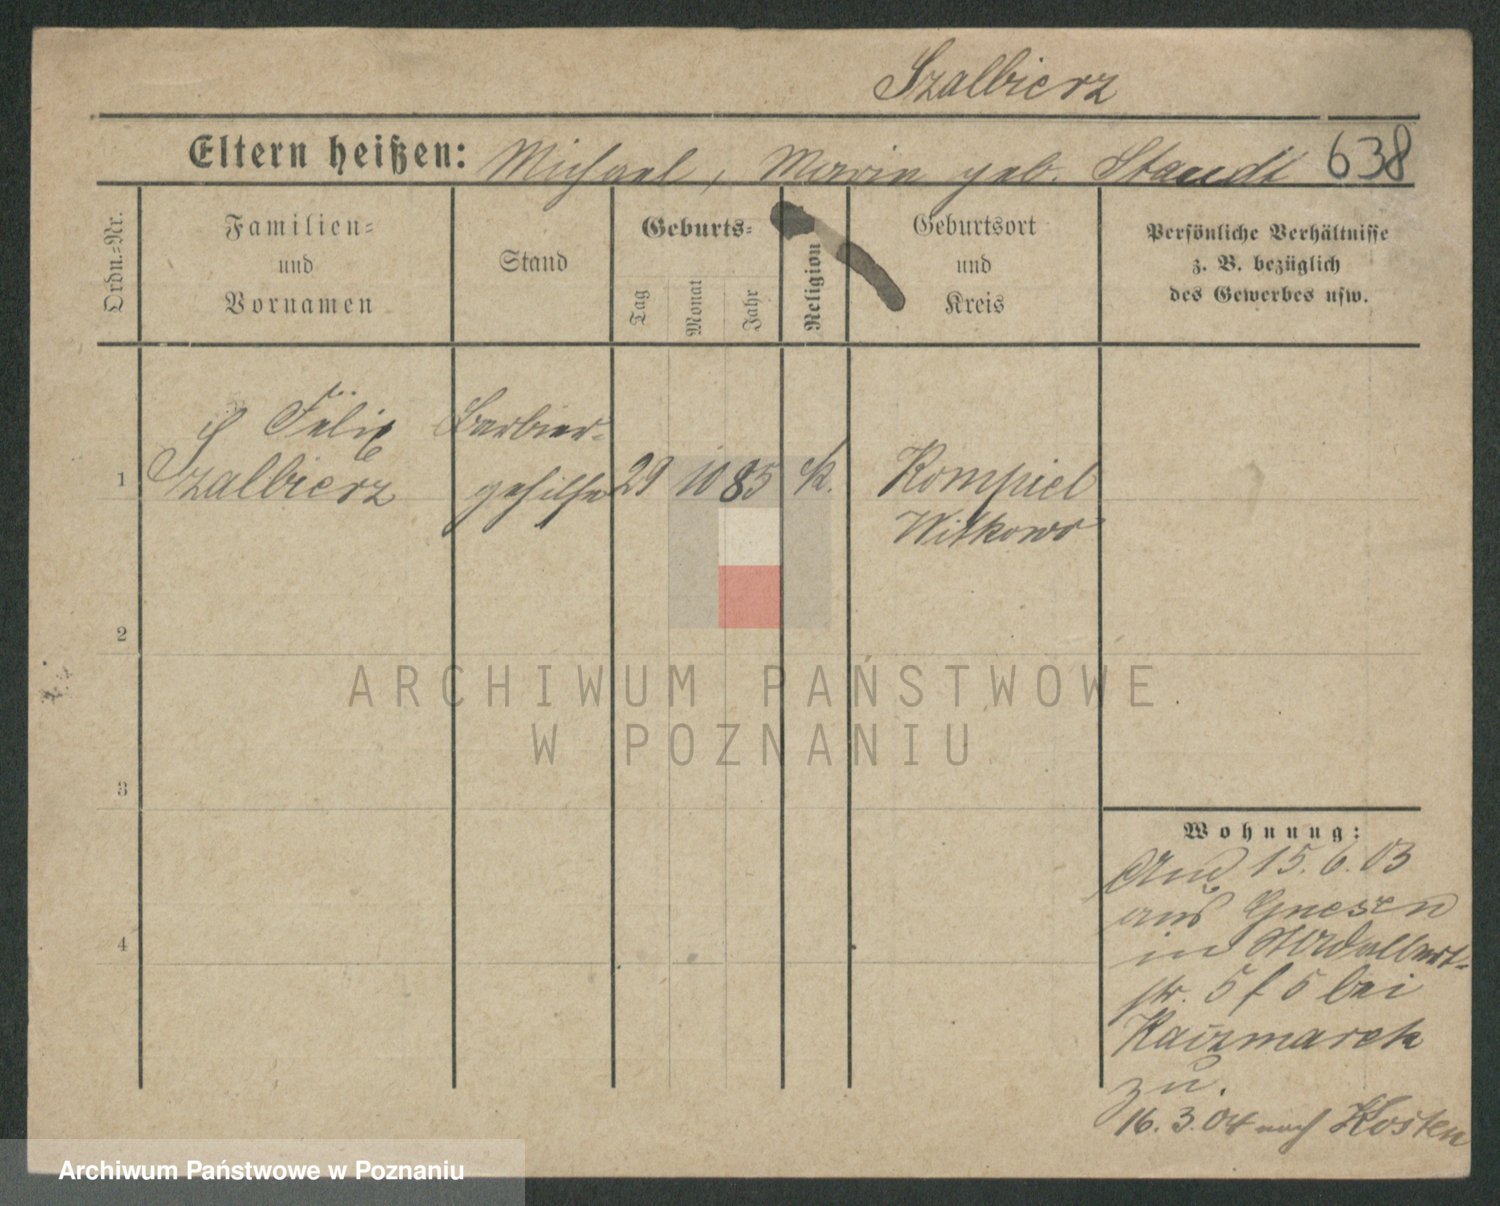 Szalbierz
Eltern heißen: Michael, Maria geb. Staudt 638
Ordn.-Nr.
Familien-
und
Vornamen
Stand
Geburts-
Tag
Monat
Jahr
Religion
Geburtsort
und
Kreis
Persönliche Verhältnisse
z. B. bezüglich
des Gewerbes usw.
Felix Barbier-
1 Szalbierz gehilfe 29 10 85 k. Rompiel
Witkowo
2
ARCHIWUM PAŃSTWOWE
W POZNANIU
3
Wohnung:
15.6.03
aus Gnesen
in Adalbert-
str. 5 bei
Kaczmarek
zu.
4
16.3.04 nach Kosten
Archiwum Państwowe w Poznaniu